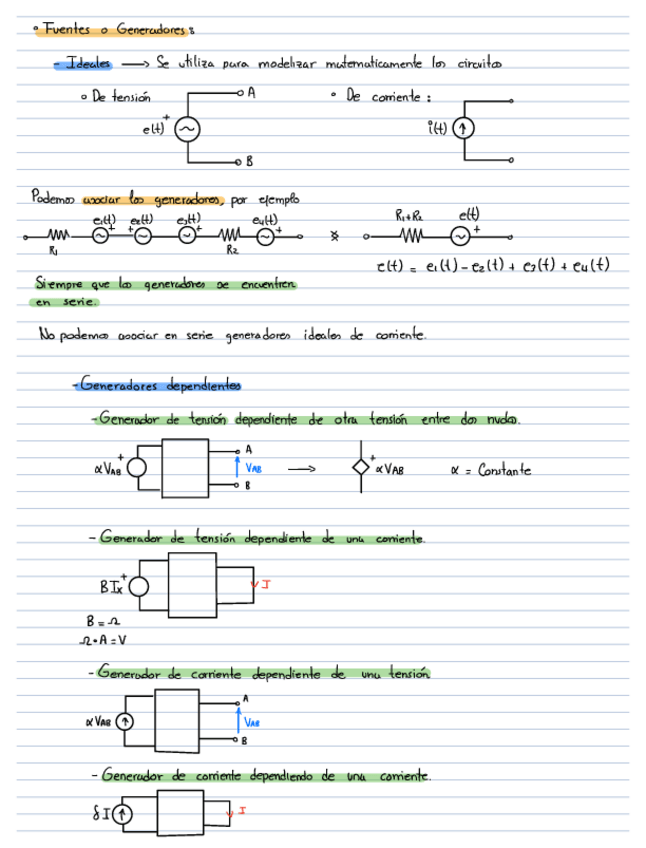 ° Fuentes o Generadores:
- Ideales ⟶ Se utiliza para modelizar matematicamente los circuitos
° De tensión
A
° De corriente :
e(t)
+
i(t)
B
Podemos asociar los generadores, por ejemplo
e₁(t) e₂(t) e₃(t) e₄(t)
R₁+R₂ e(t)
+ + + +
+
R₁ R₂
e(t) = e₁(t) - e₂(t) + e₃(t) + e₄(t)
Siempre que los generadores se encuentren
en serie.
No podemos asociar en serie generadores ideales de corriente.
- Generadores dependientes
- Generador de tensión dependiente de otra tensión entre dos nudos.
+ A
αVAB VAB ⟶ + αVAB α = Constante
B
- Generador de tensión dependiente de una corriente.
BIx + I
B = Ω
Ω·A = V
- Generador de corriente dependiente de una tensión
A
αVAB VAB
B
- Generador de corriente dependiendo de una corriente.
δI I